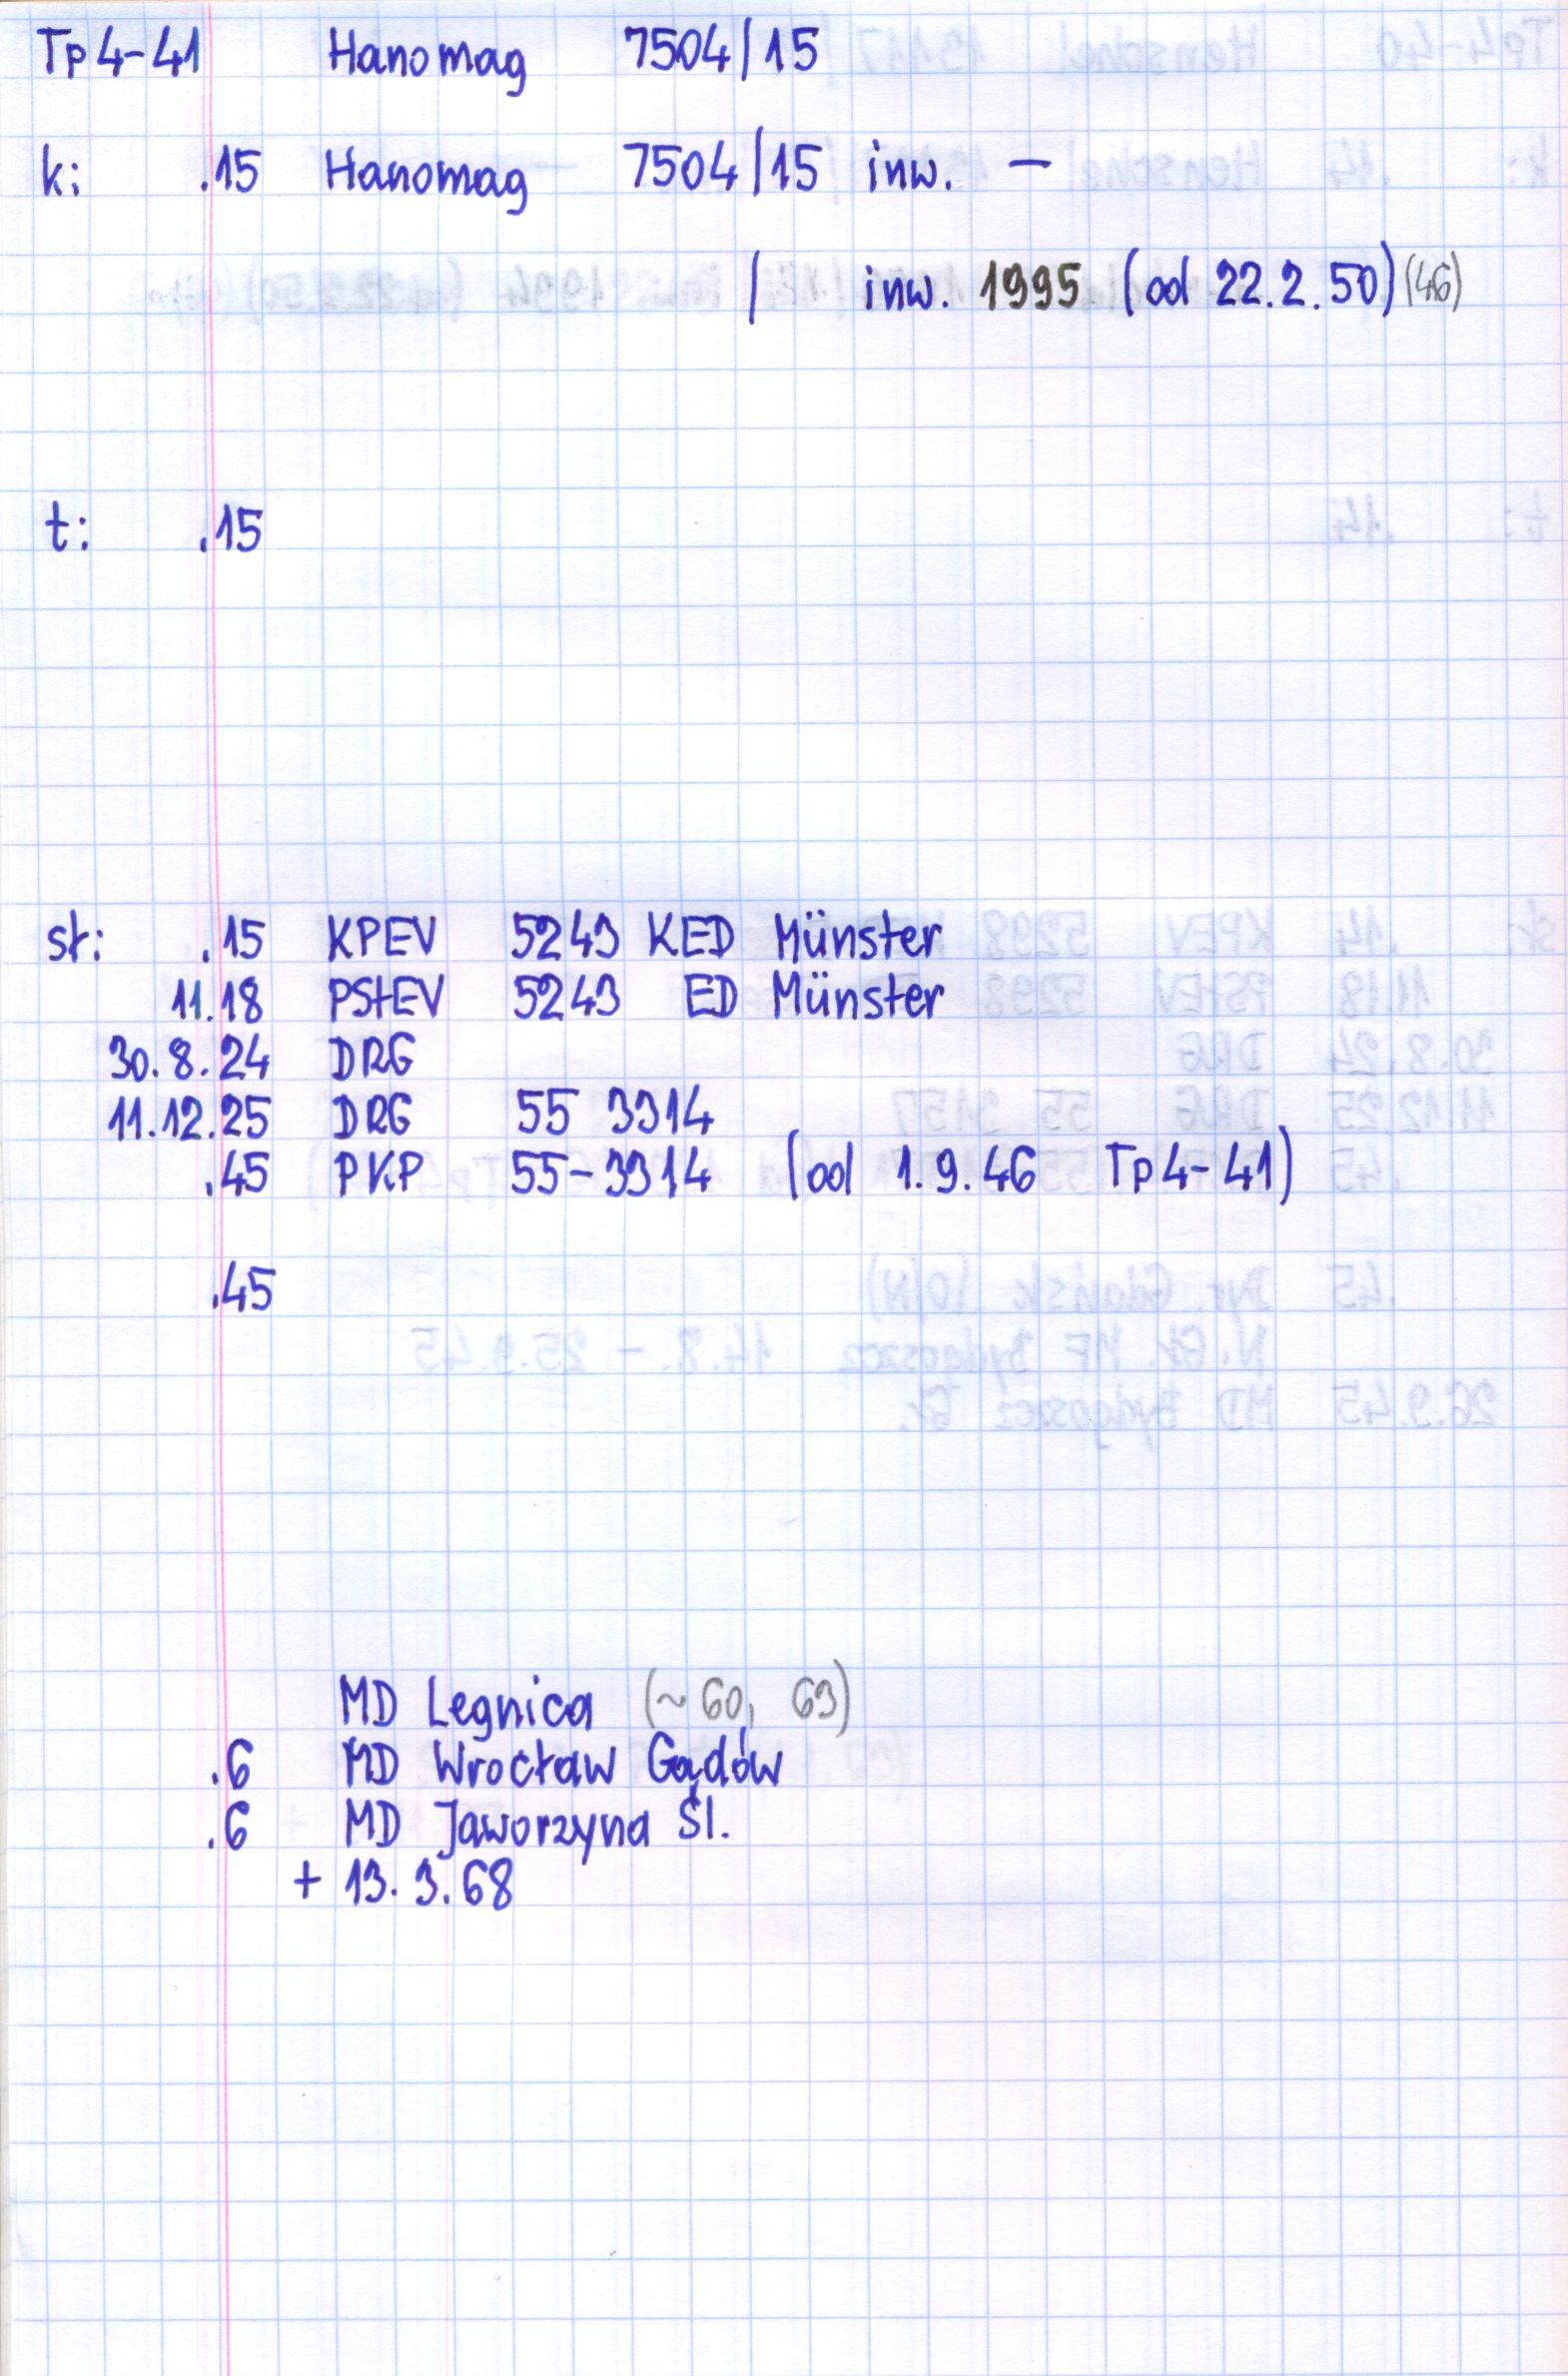 Tp4-41 Hanomag 7504/15
k: .15 Hanomag 7504/15 inw. –
/ inw. 1995 (od 22.2.50) (46)
t: .15
st: .15 KPEV 5243 KED Münster
11.18 PStEV 5243 ED Münster
30.8.24 DRG
11.12.25 DRG 55 3314
.45 PKP 55-3314 (od 1.9.46 Tp4-41)
.45
MD Legnica (~60, 63)
.6 MD Wrocław Gądów
.6 MD Jaworzyna Śl.
+ 13.3.68